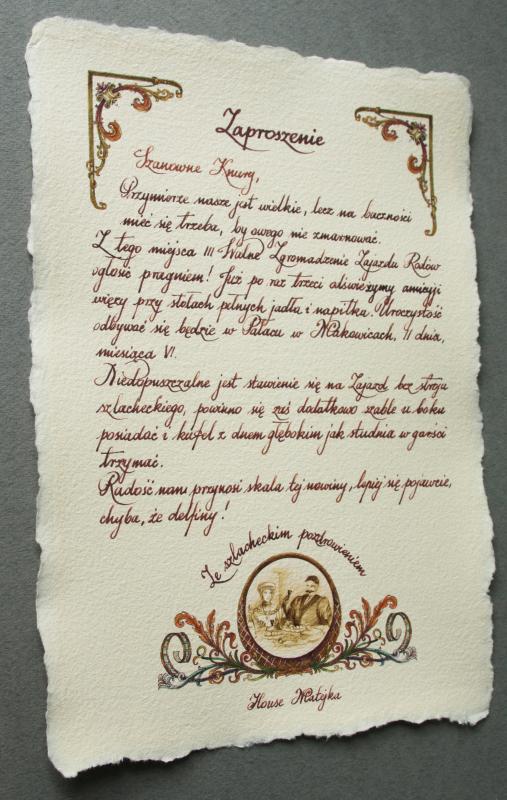 Zaproszenie
Szanowne Knury,
Przymierze nasze jest wielkie, lecz na baczności
mieć się trzeba, by owego nie zmarnować.
Z tego miejsca III Walne Zgromadzenie Zajazdu Rodów
ogłosić pragniem! Już po raz trzeci odświeżymy amicyji
więzy przy stołach pełnych jadła i napitka. Uroczystość
odbywać się będzie w Pałacu w Makowicach, 11 dnia,
miesiąca VI.
Niedopuszczalne jest stawienie się na Zajazd bez stroju
szlacheckiego, powinno się zaś dodatkowo szable u boku
posiadać i kufel z dnem głębokim jak studnia w garści
trzymać.
Radość nam przynosi skala tej nowiny, lepiej się pojawcie,
chyba, że delfiny!
Ze szlacheckim pozdrowieniem
House Matejka